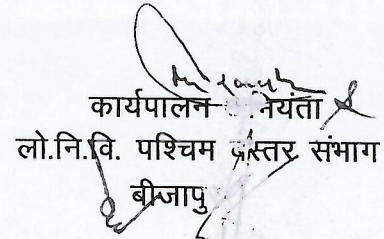 कार्यपालन नयंता
लो.नि.वि. पश्चिम स्तर संभाग
बीजापु